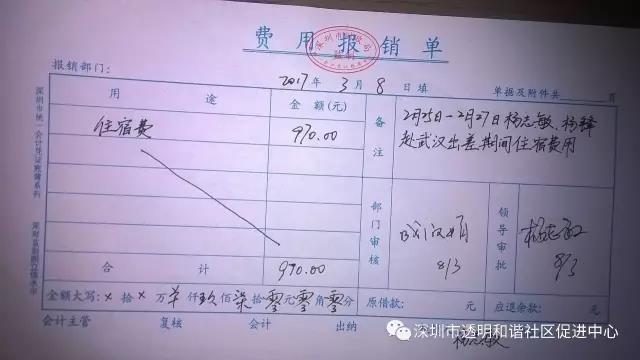 费用报销单
报销部门： 2017年3月8日填 单据及附件共 页
用途 金额(元) 备注
住宿费 970.00
2月25日-2月27日杨志敏、杨锋
赴武汉出差期间住宿费用
部门审核 8/3 领导审批 杨志敏 8/3
合计 970.00
金额大写：× 拾 × 万 仟玖佰柒拾零元零角零分 原借款： 元 应退余款： 元
会计主管 复核 会计 出纳
杨志敏
深圳市透明和谐社区促进中心